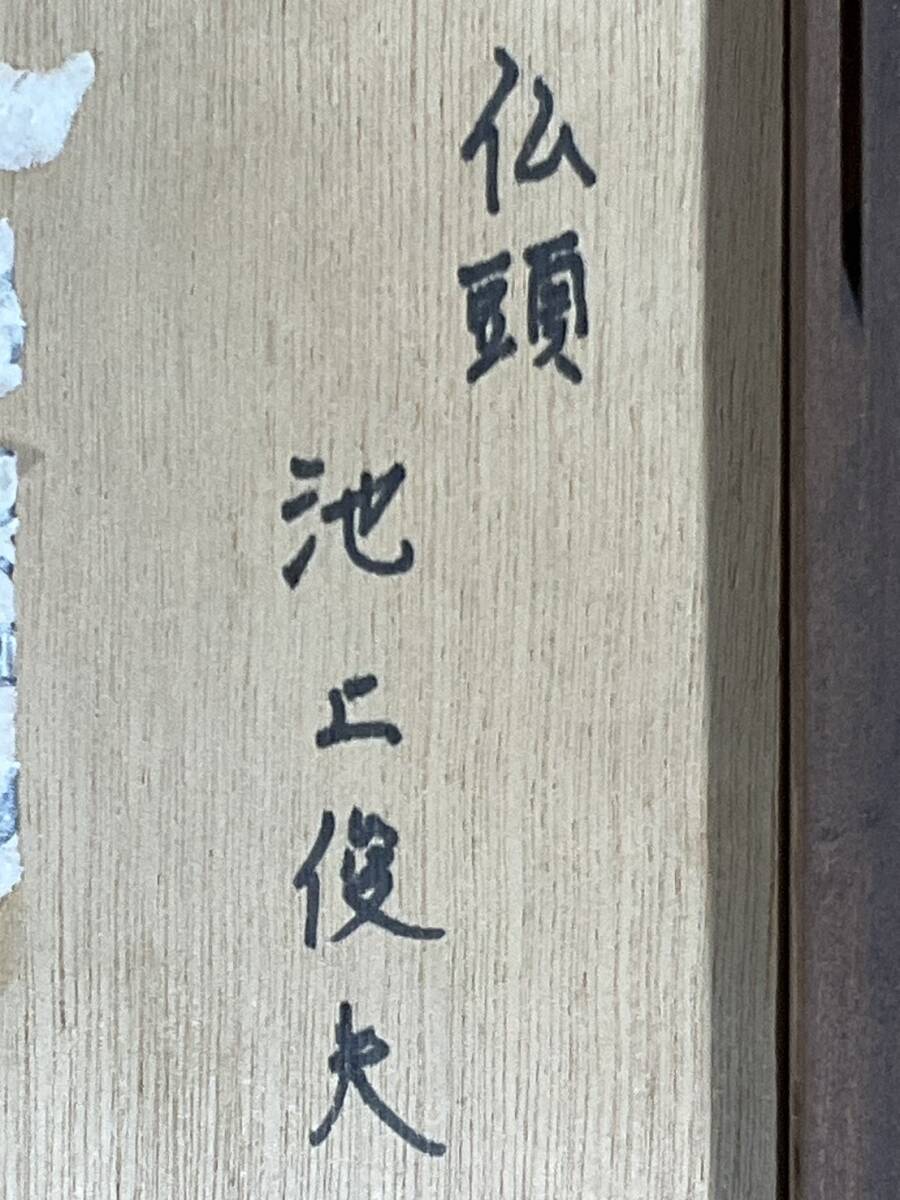 仏頭
池上俊夫